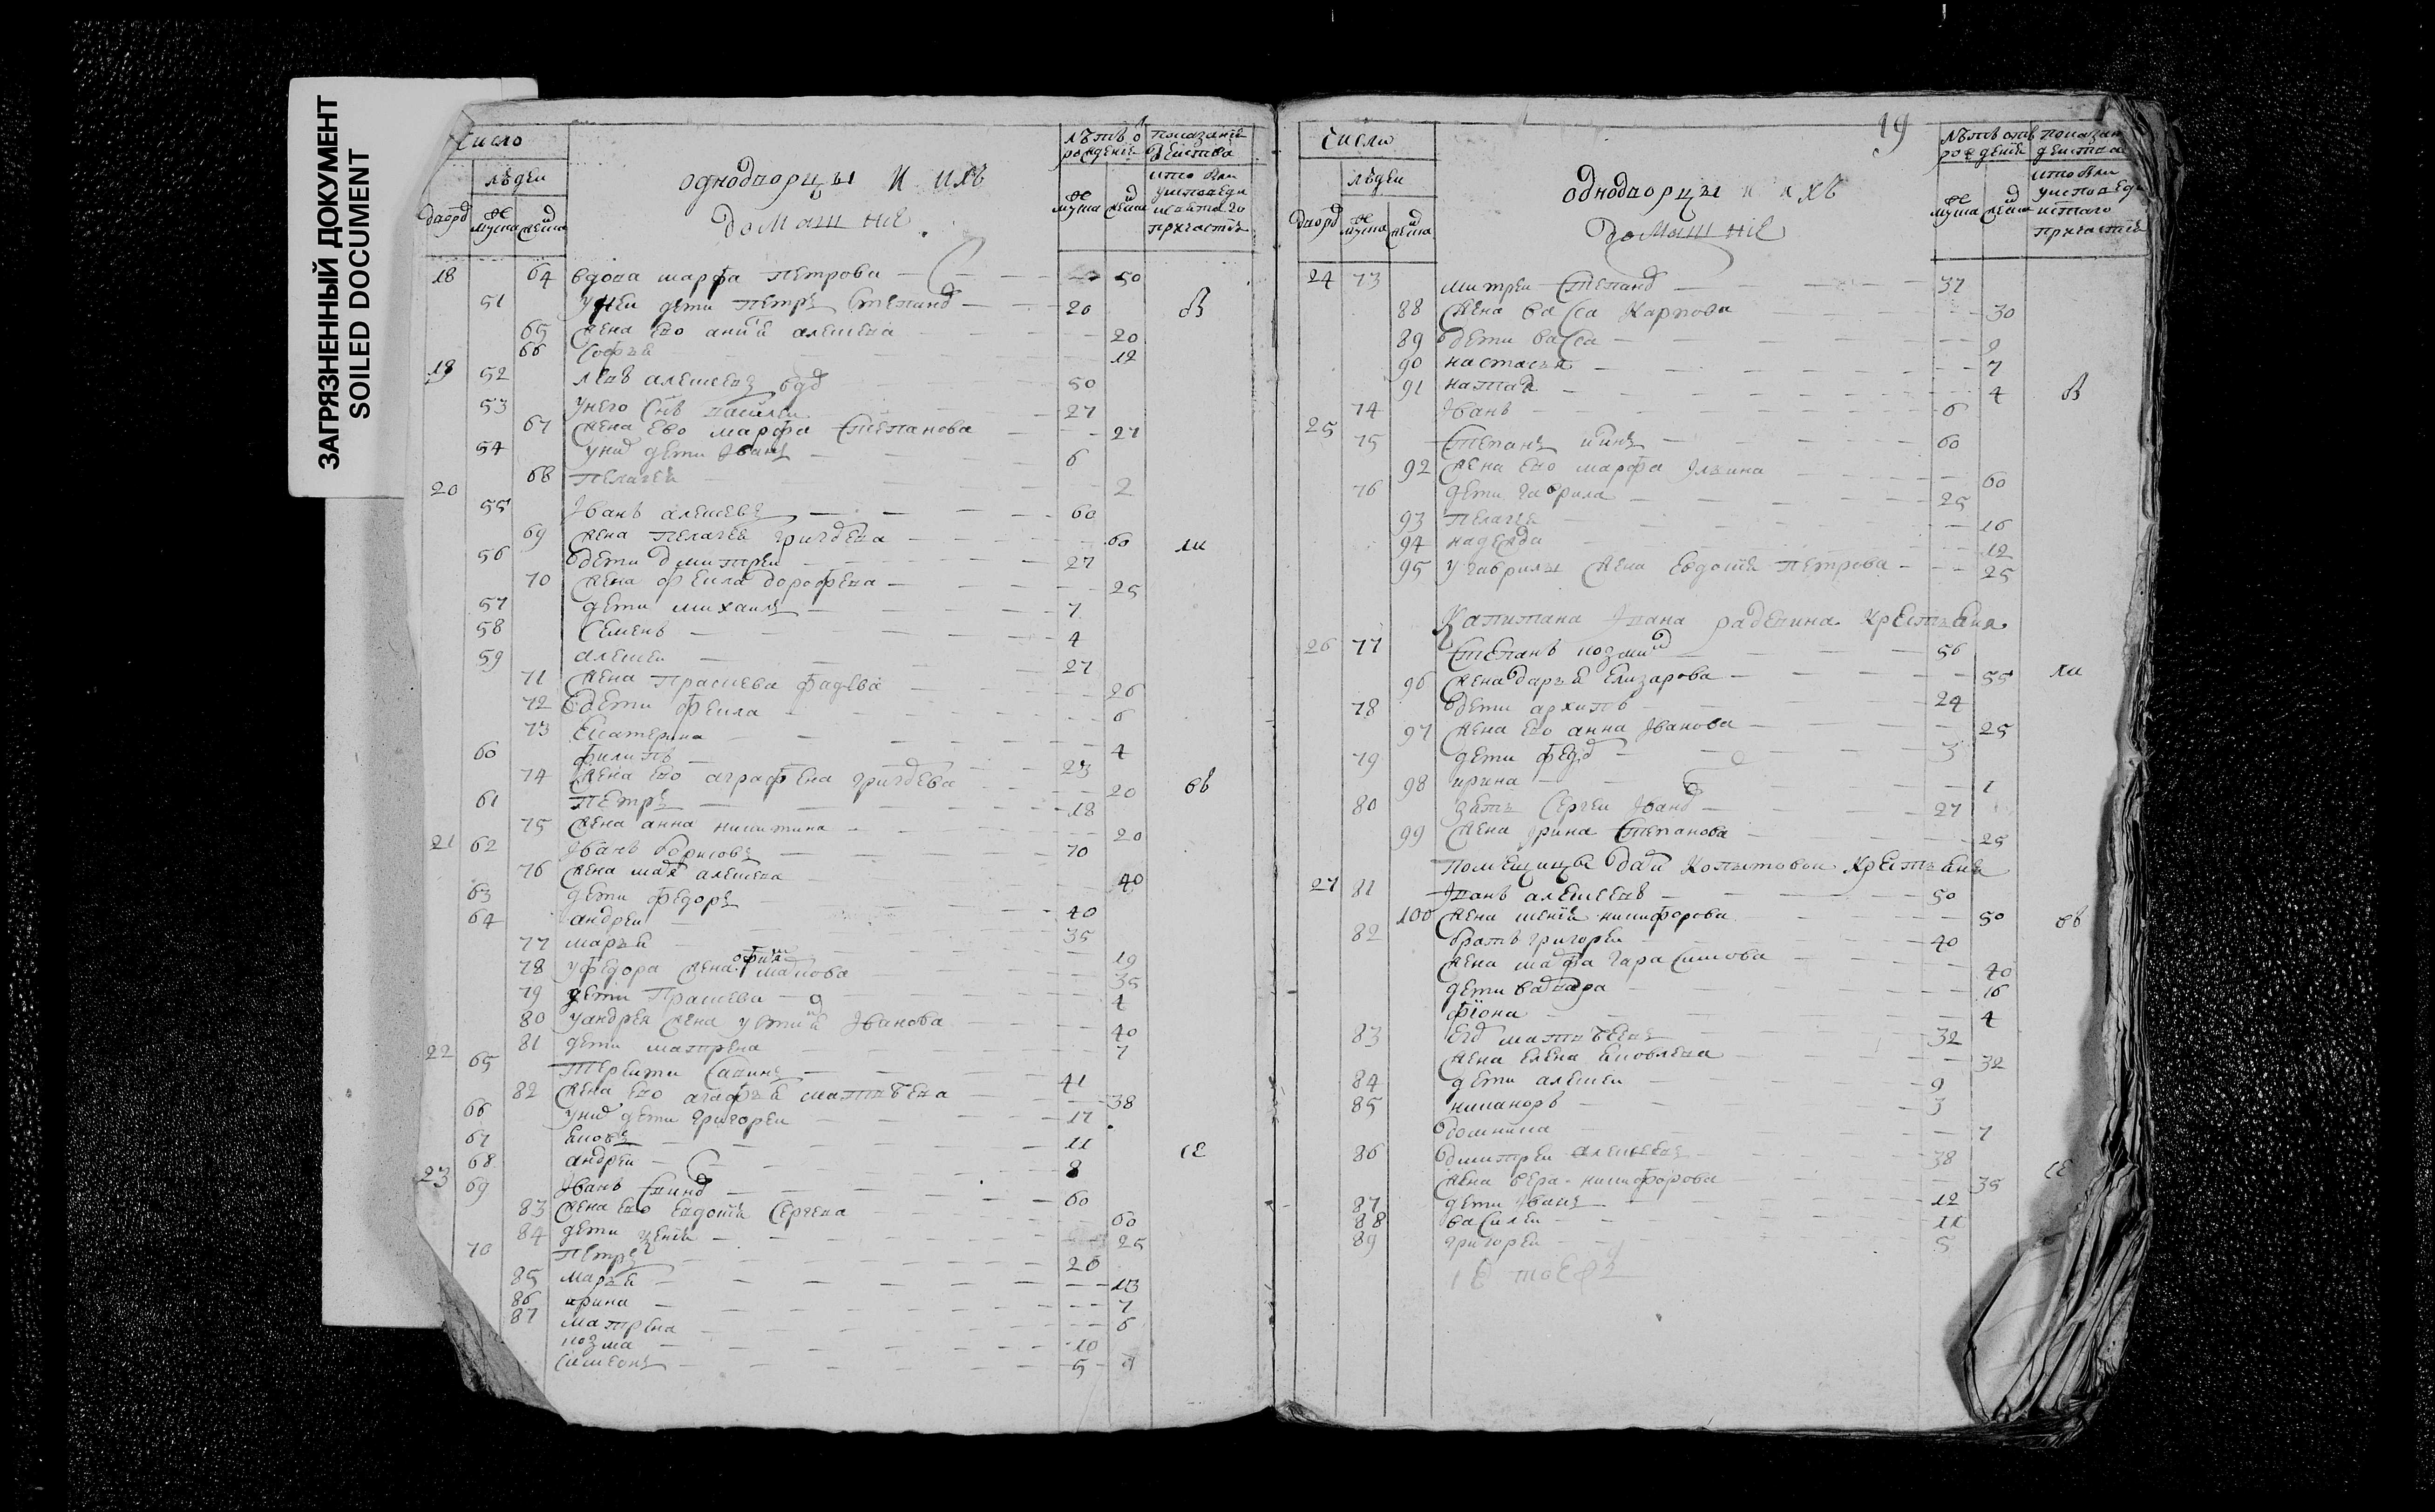 ЗАГРЯЗНЕННЫЙ ДОКУМЕНТ
SOILED DOCUMENT
Число
людей
дворов
мужеска
женска
однодворцы и ихъ
домашніе
лѣтъ о
рождения
показание
действа
кто был
у исповеди
и святаго
причастия
18 64 вдова марфа петрова 50
51 у неи дети петръ степанов 20
65 жена ево анисия алексеева 20
66 софья 12
19 52 левъ алексеевъ вдов 50
53 у него снъ василеи 27
67 жена ево марфа степанова 27
54 у них дети Iванъ 6
68 пелагея 2
20
55 Iванъ алексеевъ 60
69 жена пелагея григорева 60
56 дети дмитреи 27
70 жена фекла дорофеева 25
57 дети михаилъ 7
58 семенъ 4
59 алексеи 27
71 жена прасковья фадеева 26
72 дети фекла 6
73 екатерина 4
60 филипъ 23
74 жена ево аграфена григорева 20
61 петръ 18
75 жена анна никитина 20
21 62 Iванъ борисовъ 70
76 жена алексеева 40
63 дети федоръ 40
64 андреи 35
77 марья 19
78 у федора жена 35
79 дети прасковья 4
80 у андрея жена устиния Iванова 40
81 дети матрена 7
22 65 терентеи савинъ 41
82 жена ево агафья матвѣева 38
66 у них дети григореи 17
67 яковъ 11
68 андреи 8
23 69 Iванъ 60
83 жена ево евдокия сергеева 60
84 дети ксения 25
70 петръ 20
85 марья 13
86 ирина 7
87 матрена 6
козма 10
симеонъ 5
19
Число
людей
дворов
мужеска
женска
однодворцы и ихъ
домашніе
лѣтъ от
рождения
показан
действа
кто был
у исповеди
и святаго
причастия
24 73 митреи степанов 37
88 жена васса карпова 30
89 дети васса 9
90 настасья 7
91 наталя 4
74 Iванъ 6
25 75 степанъ 60
92 жена ево марфа Iльина 60
76 дети гаврила 25
93 пелагея 16
94 надежда 12
95 у гаврилы жена евдокия петрова 25
Капитана Iвана крестьяня
26 77 степанъ козмин 56
96 жена дарья елизарова 55
78 дети архипъ 24
97 жена ево анна Iванова 25
79 дети федор 3
98 ирина 1
80 зять сергеи Iванов 27
99 жена Iрина степанова 25
помещицы копытовои крестьяня
27 81 Iванъ алексеевъ 50
100 жена никифорова 50
82 братъ григореи 40
жена марфа гарасимова 40
дети варвара 16
фiона 4
83 матвѣевъ 32
жена елена яковлева 32
84 дети алексеи 9
85 никаноръ 3
домника 7
86 дмитреи алексеевъ 38
жена вера никифорова 35
87 дети Iванъ 12
88 василеи 11
89 григореи 5